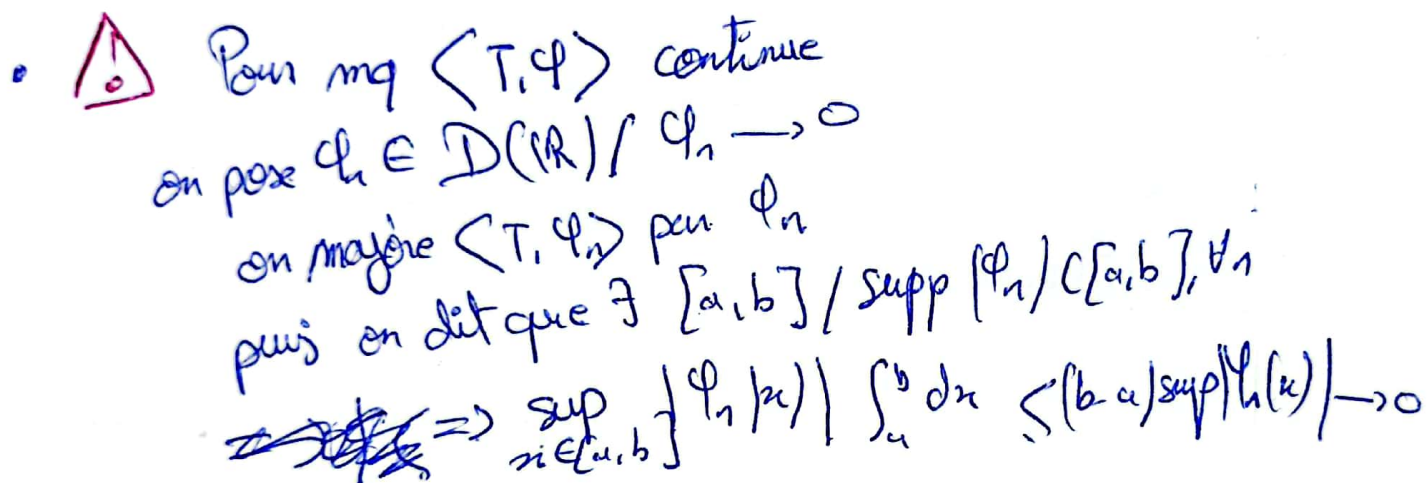 • ⚠ Pour mq <T,φ> continue
on pose φn ∈ D(ℝ) / φn → 0
on majore <T,φn> par φn
puis on dit que ∃ [a,b] / supp(φn) ⊂ [a,b], ∀n
=> sup x∈[a,b] |φn(x)| ∫_a^b dx ≤ (b-a) sup|φn(x)| → 0